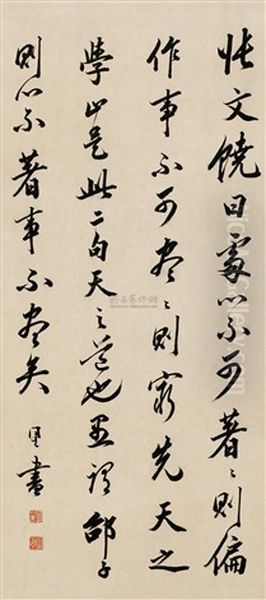 張文饒曰處心不可著〻則偏
作事不可盡〻則窮先天之
學止是此二句天之道也愚謂邵子
則心不著事不盡矣
書